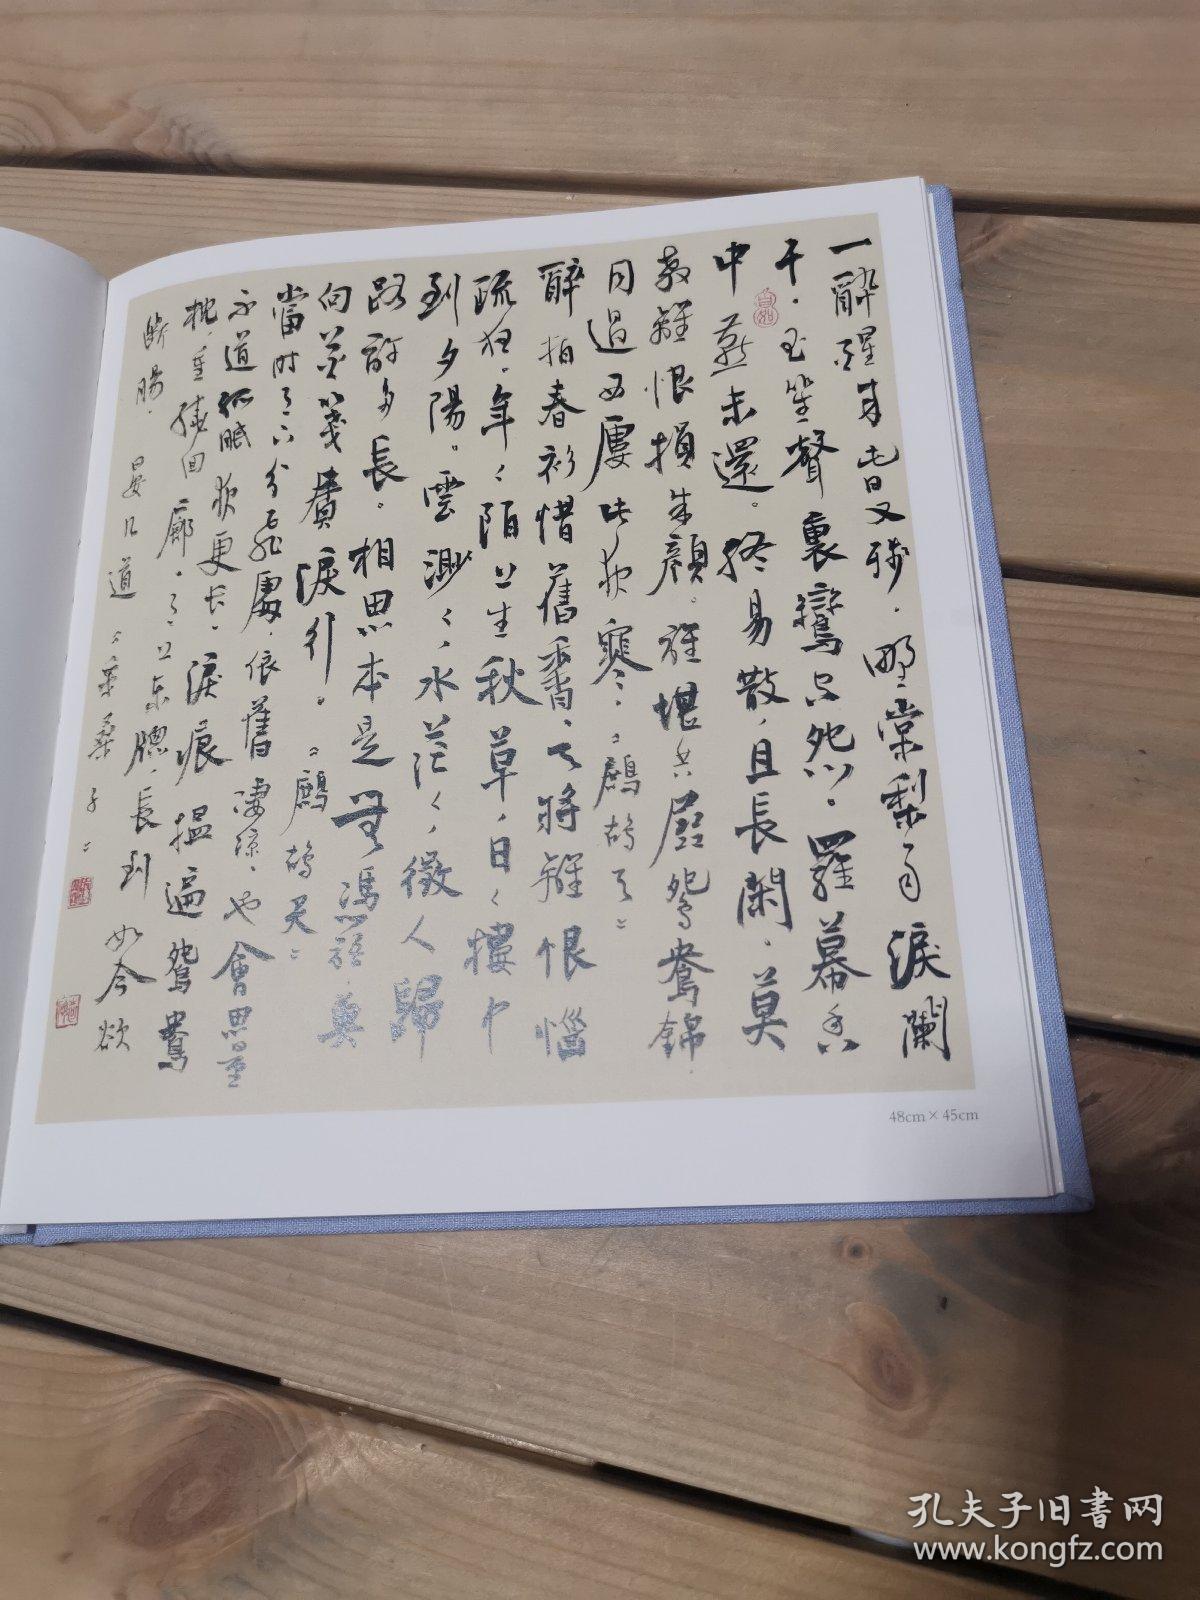 一醉醒來春又殘。野棠梨雨淚闌
干。玉笙聲裏鸞空怨。羅幕香
中燕未還。終易散、且長閑。莫
教離恨損朱顏。誰堪共展鴛鴦錦
同過西樓此夜寒。鷓鴣天
醉拍春衫惜舊香、天將離恨惱
疏狂。年々陌上生秋草、日々樓中
到夕陽。雲渺々、水茫々、徵人歸
路許多長。相思本是無憑語、莫
向花箋費淚行。鷓鴣天
當時月下分飛處、依舊淒涼、也會思量
不道孤眠夜更長、淚痕揾遍鴛鴦
枕、重繞回廊、月上東窗、長到如今欲
斷腸、晏几道 采桑子
48cm × 45cm
孔夫子旧书网
www.kongfz.com